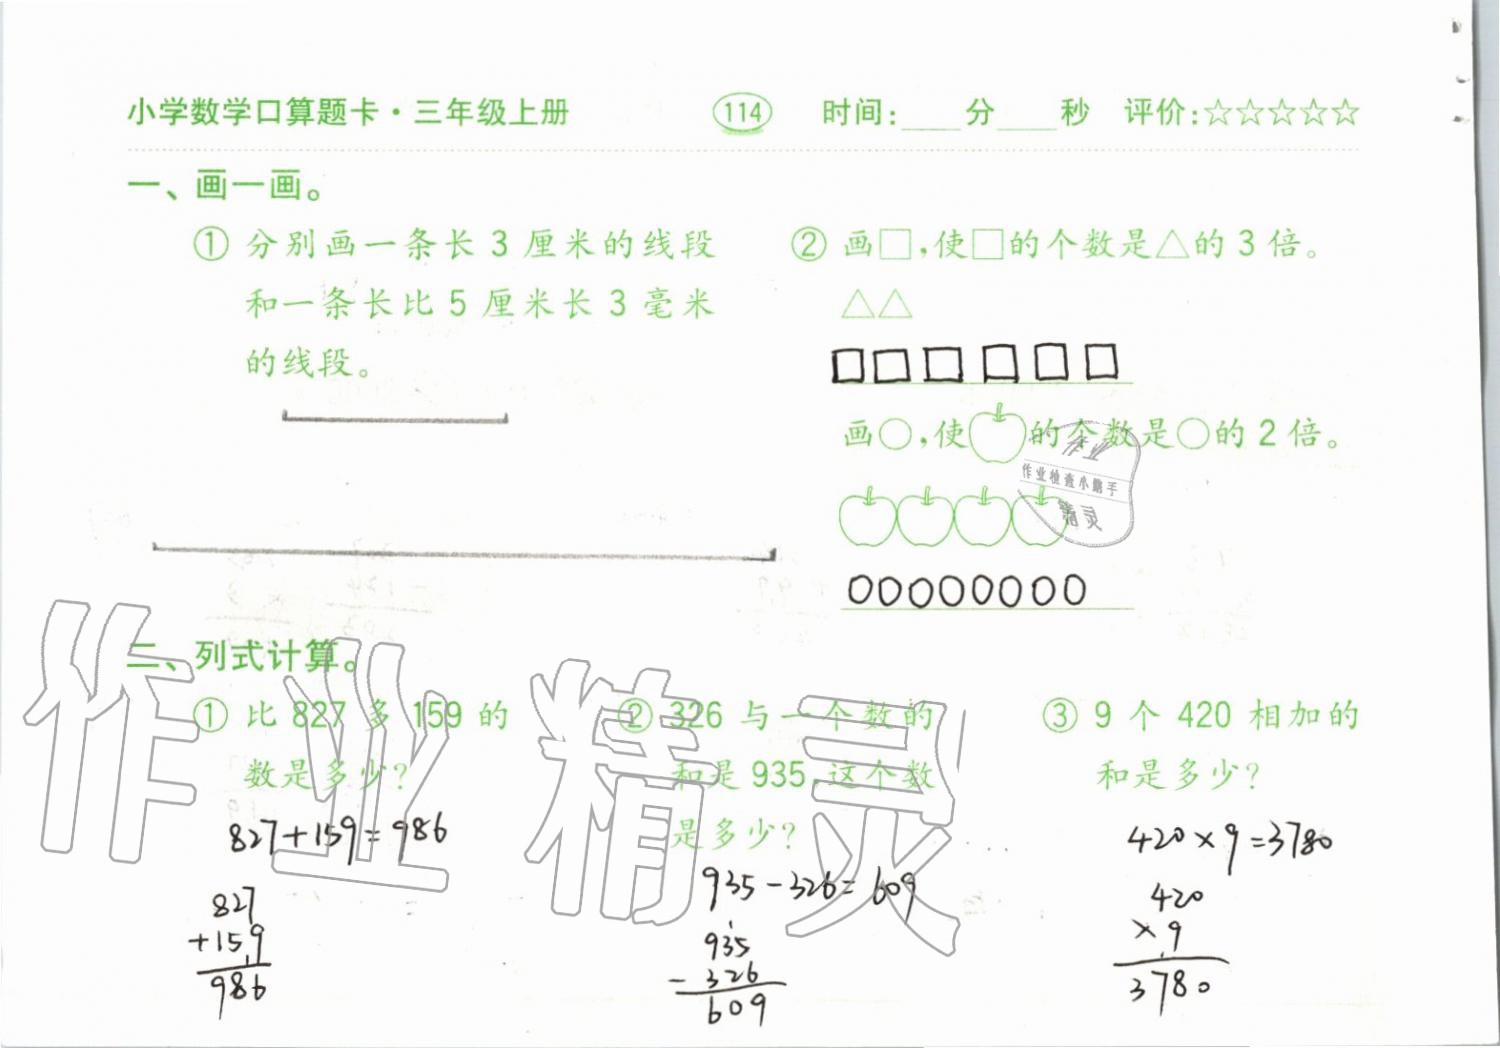 小学数学口算题卡·三年级上册 114 时间:____分____秒 评价:☆☆☆☆☆
一、画一画。
① 分别画一条长 3 厘米的线段
和一条长比 5 厘米长 3 毫米
的线段。
② 画□,使□的个数是△的 3 倍。
△△
□□□□□□
画○,使 的个数是○的 2 倍。
作业
作业检查小帮手
精灵
○○○○○○○○
二、列式计算。
① 比 827 多 159 的
数是多少?
827+159=986
827
+159
986
② 326 与一个数的
和是 935,这个数
是多少?
935-326=609
935
-326
609
③ 9 个 420 相加的
和是多少?
420×9=3780
420
×9
3780
作业精灵